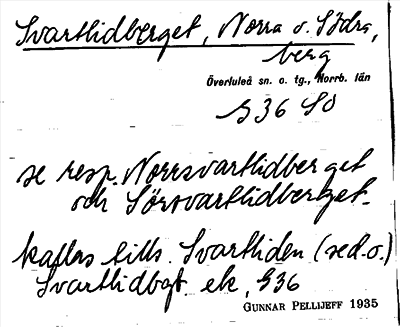 Svartlidberget, Norra o. Södra,
berg
Överluleå sn. o. tg., Norrb. län
G36 SO
se resp. Norrsvartlidberget
och Sörsvartlidberget.
kallas tills. Svartliden (se d.o.)
Svartlidbgt. ek, G36
GUNNAR PELLIJEFF 1935